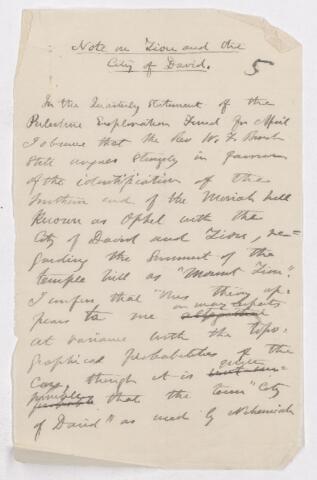 Note on Zion and the
City of David.
5
In the Quarterly Statement of the
Palestine Exploration Fund for April
I observe that the Rev W. F. Birch
still argues strongly in favour
of the identification of the
Southern end of the Moriah hill
known as Ophel with the
City of David and Zion, re-
garding the summit of the
temple hill as "Mount Zion".
I confess that this theory ap-
pears to me on many points
at variance with the topo-
graphical probabilities of the
case, though it is quite
possible that the term "City
of David" as used by Nehemiah